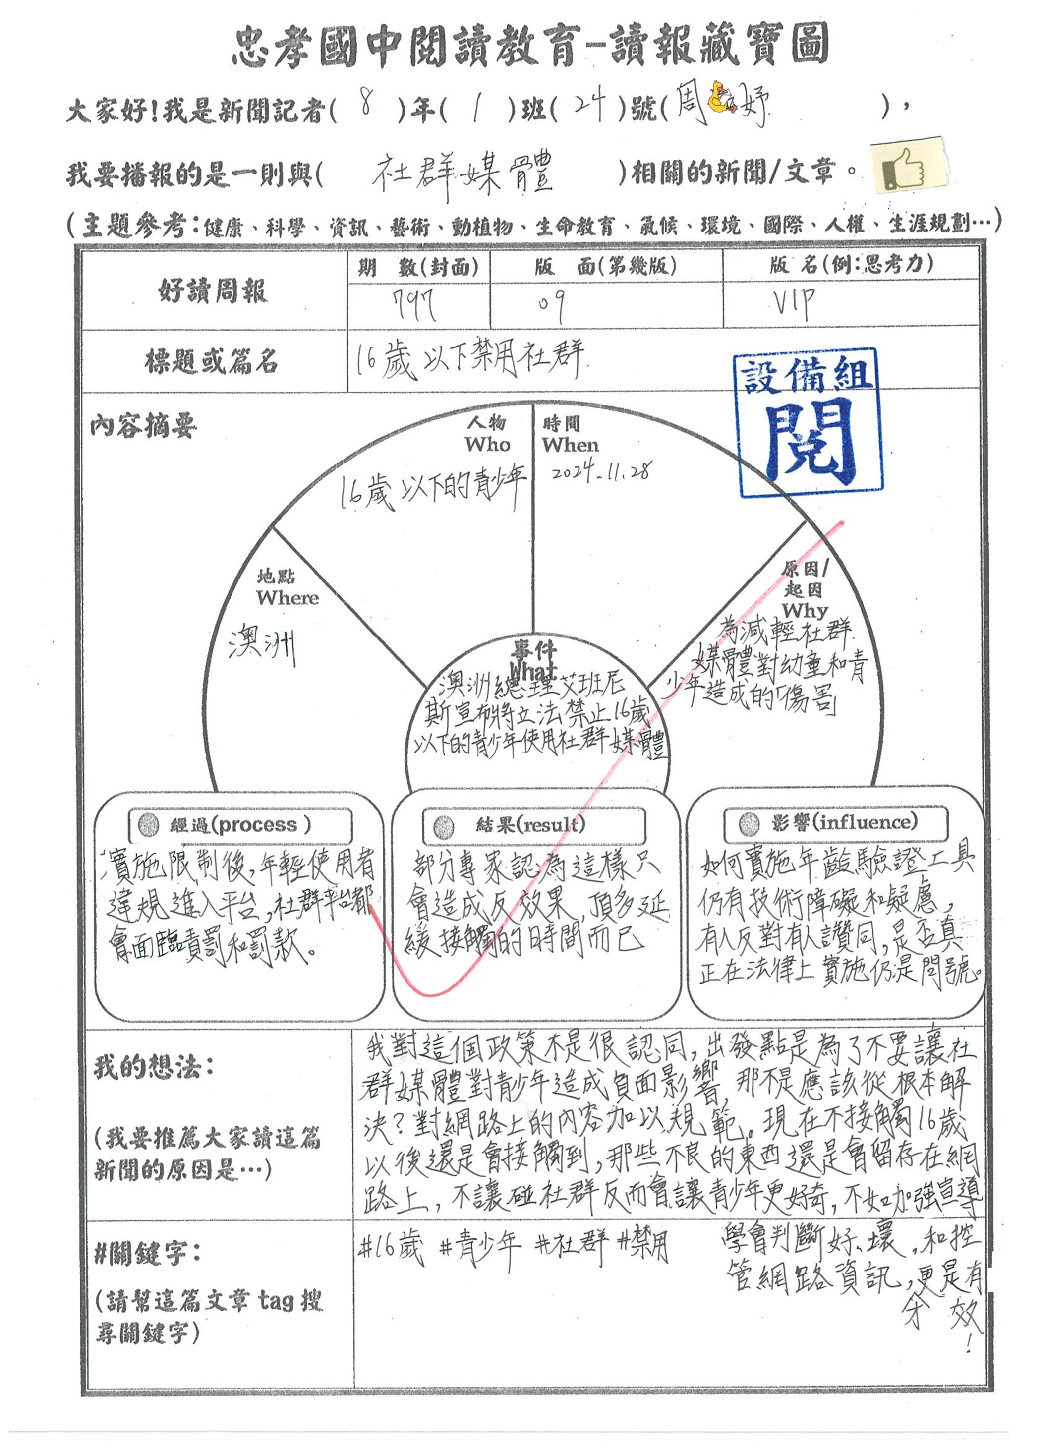 忠孝國中閱讀教育-讀報藏寶圖
大家好!我是新聞記者( 8 )年( 1 )班( 24 )號(周 妤 ),
我要播報的是一則與( 社群媒體 )相關的新聞/文章。
(主題參考:健康、科學、資訊、藝術、動植物、生命教育、氣候、環境、國際、人權、生涯規劃…)
好讀周報
期 數(封面)
版 面(第幾版)
版 名(例:思考力)
797
09
VIP
標題或篇名
16歲以下禁用社群
設備組
閱
內容摘要
人物
Who
16歲以下的青少年
時間
When
2024.11.28
地點
Where
澳洲
原因/
起因
Why
為減輕社群
媒體對幼童和青
少年造成的「傷害
事件
What
澳洲總理艾班尼
斯宣布將立法禁止16歲
以下的青少年使用社群媒體
經過(process )
實施限制後,年輕使用者
違規進入平台,社群平台都
會面臨責罰和罰款。
結果(result)
部分專家認為這樣只
會造成反效果,頂多延
緩接觸的時間而已
影響(influence)
如何實施年齡驗證工具
仍有技術障礙和疑慮,
有人反對有人讚同,是否真
正在法律上實施仍是問號。
我的想法:
(我要推薦大家讀這篇
新聞的原因是…)
我對這個政策不是很認同,出發點是為了不要讓社
群媒體對青少年造成負面影響,那不是應該從根本解
決?對網路上的內容加以規範。現在不接觸16歲
以後還是會接觸到,那些不良的東西還是會留存在網
路上,不讓碰社群反而會讓青少年更好奇,不如加強宣導
學會判斷好、壞,和控
管網路資訊,更是有
效!
#關鍵字:
(請幫這篇文章 tag 搜
尋關鍵字)
#16歲 #青少年 #社群 #禁用